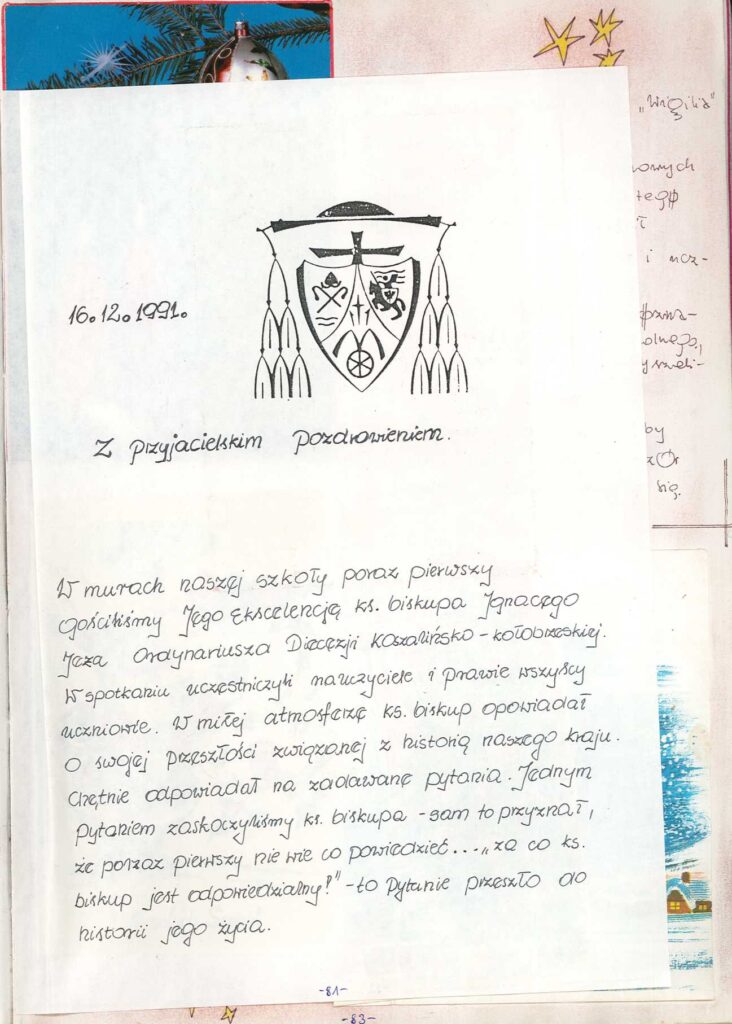 16.12.1991.
Z przyjacielskim pozdrowieniem.
W murach naszej szkoły poraz pierwszy
gościliśmy Jego Ekscelencję ks. biskupa Ignacego
Jeża Ordynariusza Diecezji Koszalińsko-kołobrzeskiej.
W spotkaniu uczestniczyli nauczyciele i prawie wszyscy
uczniowie. W miłej atmosferze ks. biskup opowiadał
o swojej przeszłości związanej z historią naszego kraju.
Chętnie odpowiadał na zadawane pytania. Jednym
pytaniem zaskoczyliśmy ks. biskupa - sam to przyznał,
że poraz pierwszy nie wie co powiedzieć... "za co ks.
biskup jest odpowiedzialny?" - to pytanie przeszło do
historii jego życia.
-81-
-83-
"Wigilia"
i ucz-
by
się.